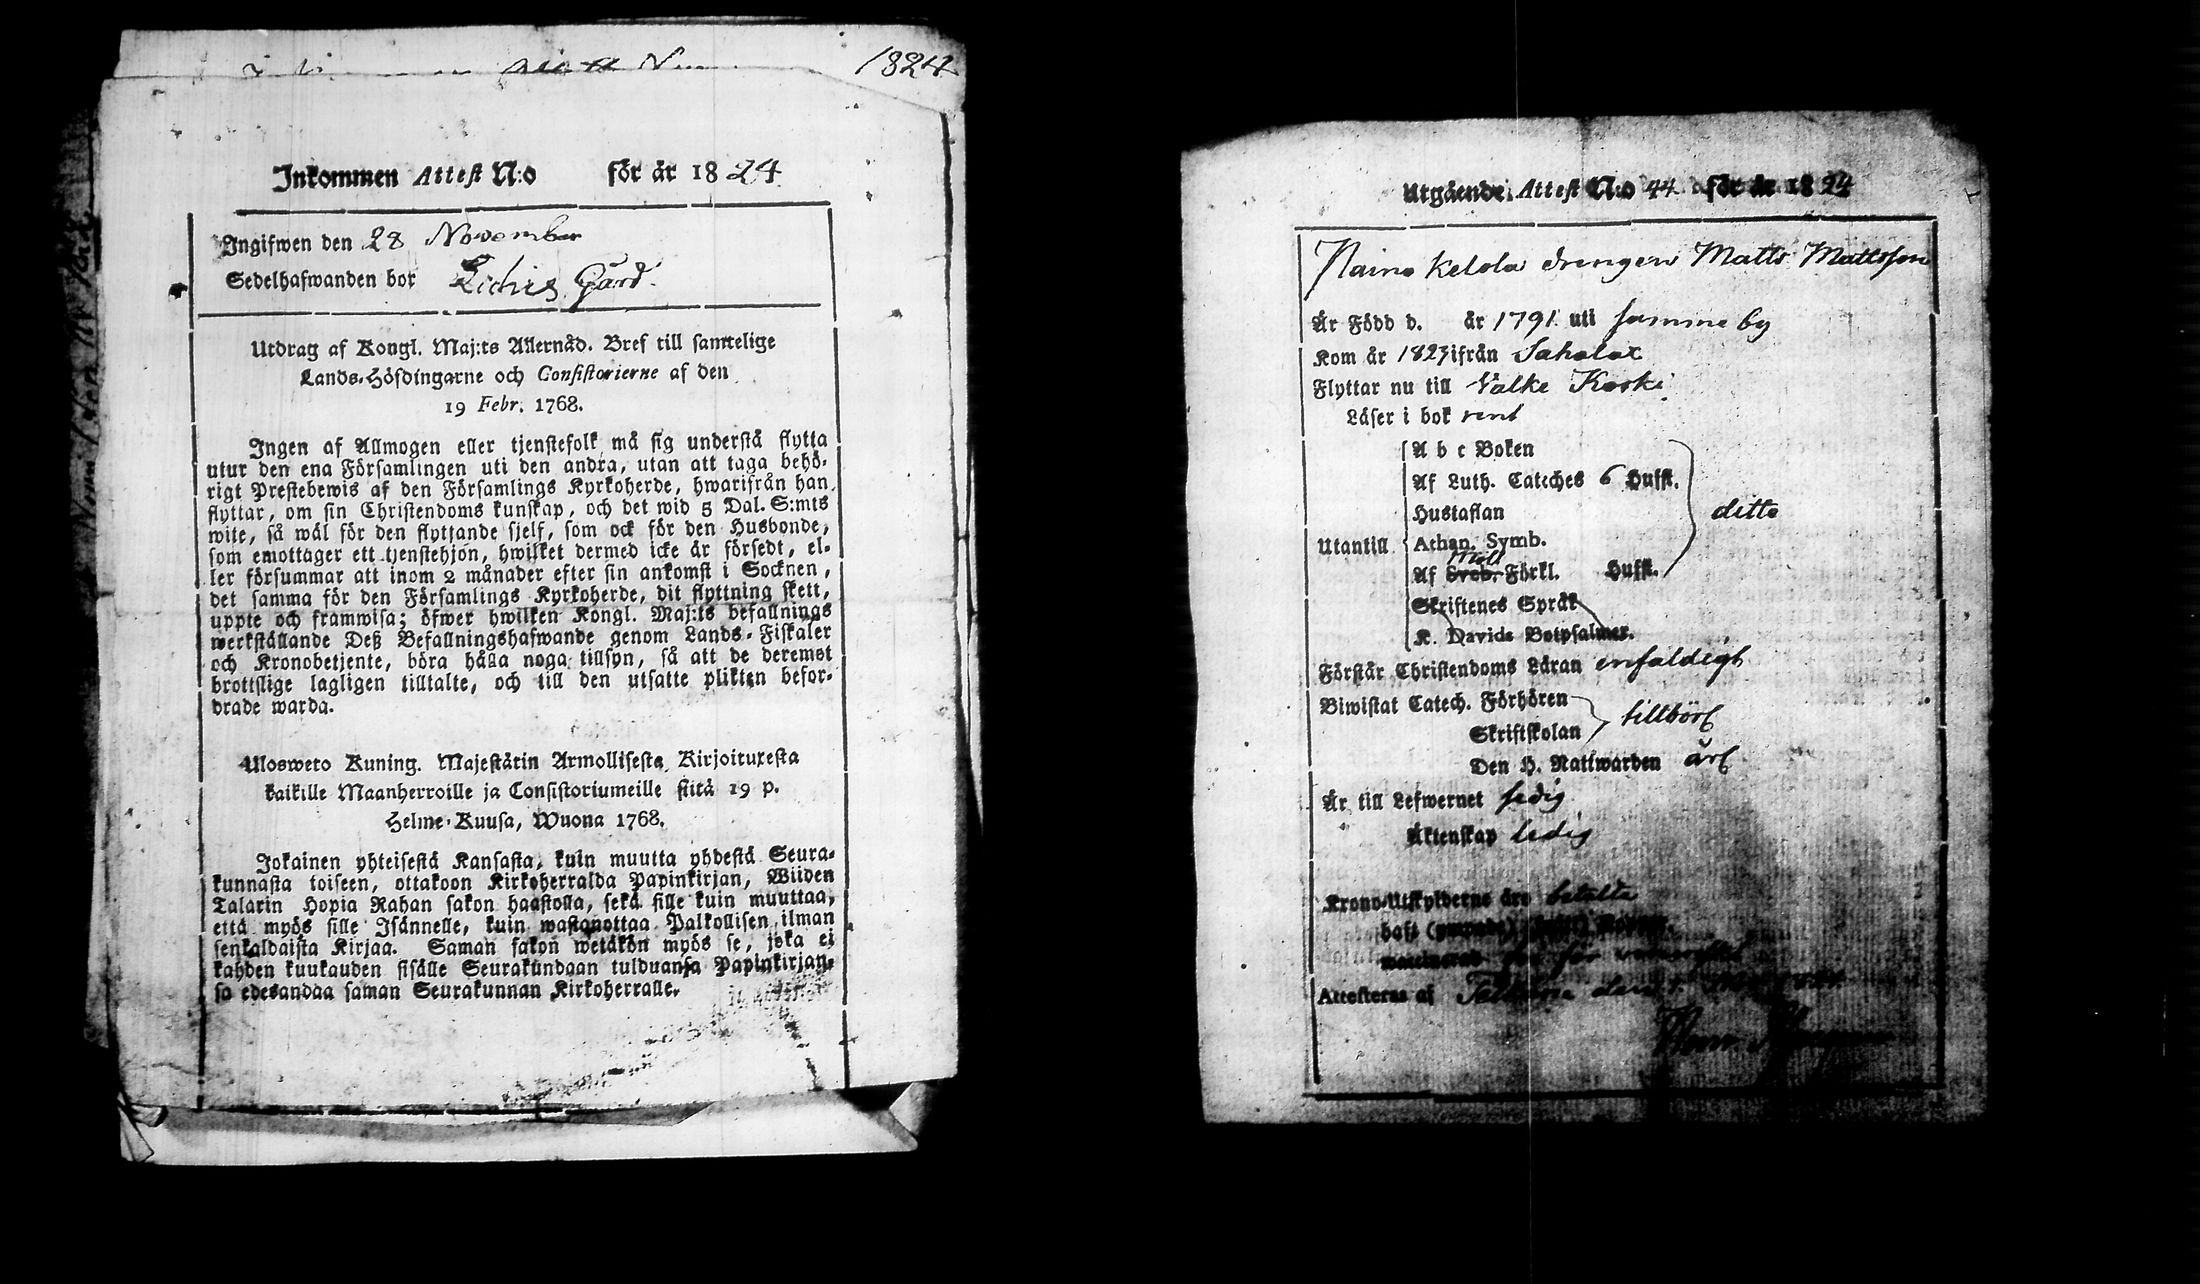 1824
Inkommen Attest N:o för år 1824
Ingifwen den 28 November
Sedelhafwanden bor Gård
Utdrag af Kongl. Maj:ts Allernåd. Bref till samtelige
Lands-Höfdingarne och Consistorierne af den
19 Febr. 1768.
Ingen af Allmogen eller tjenstefolk må sig understå flytta
utur den ena Församlingen uti den andra, utan att taga behö-
rigt Prestebewis af den Församlings Kyrkoherde, hwarifrån han
flyttar, om sin Christendoms kunskap, och det wid 5 Dal. S:mts
wite, så wäl för den flyttande sjelf, som ock för den Husbonde,
som emottager ett tjenstehjon, hwilket dermed icke är försedt, el-
ler försummar att inom 2 månader efter sin ankomst i Socknen,
det samma för den Församlings Kyrkoherde, dit flyttning skett,
uppte och framwisa; öfwer hwilken Kongl. Maj:ts befallnings
werkställande Deß Befallningshafwande genom Lands-Fiskaler
och Kronobetjente, böra hålla noga tillsyn, så att de deremot
brottslige lagligen tilltalte, och till den utsatte plikten befor-
drade warda.
Ulosweto Kuning. Majestätin Armollisesta Kirjoituxesta
kaikille Maanherroille ja Consistoriumeille siitä 19 p.
Helme-Kuusa, Wuona 1768.
Jokainen yhteisestä Kansasta, kuin muutta yhdestä Seura-
kunnasta toiseen, ottakoon Kirkoherralda Papinkirjan, Wiiden
Talarin Hopia Rahan sakon haastolla, sekä sille kuin muuttaa,
että myös sille Isännelle, kuin wastanottaa Palkollisen ilman
senkaldaista Kirjaa. Saman sakon wetäkön myös se, joka ei
kahden kuukauden sisälle Seurakundaan tulduansa Papinkirjan-
sa edesandaa saman Seurakunnan Kirkoherralle.
Utgående Attest N:o 44 för år 1824
Kelola drengen Matts Mattsson
Är Född d. år 1791 uti samme by
Kom år 1823 ifrån Sahalax
Flyttar nu till Välke Koski
Läser i bok rent
A b c Boken
Af Luth. Cateches 6 Hufst.
Hustaflan
ditto
Utantill
Athan. Symb.
Af Sveb. Förkl. Hufst.
Skriftenes Språk
K. Davids Botpsalmer.
Förstår Christendoms Läran enfaldigt
Biwistat Catech. Förhören
Skriftskolan
Den H. Nattwarden
Är till Lefwernet sedig
Äktenskap ledig
Krono-Utskylderne äro betalta
Attesteras af